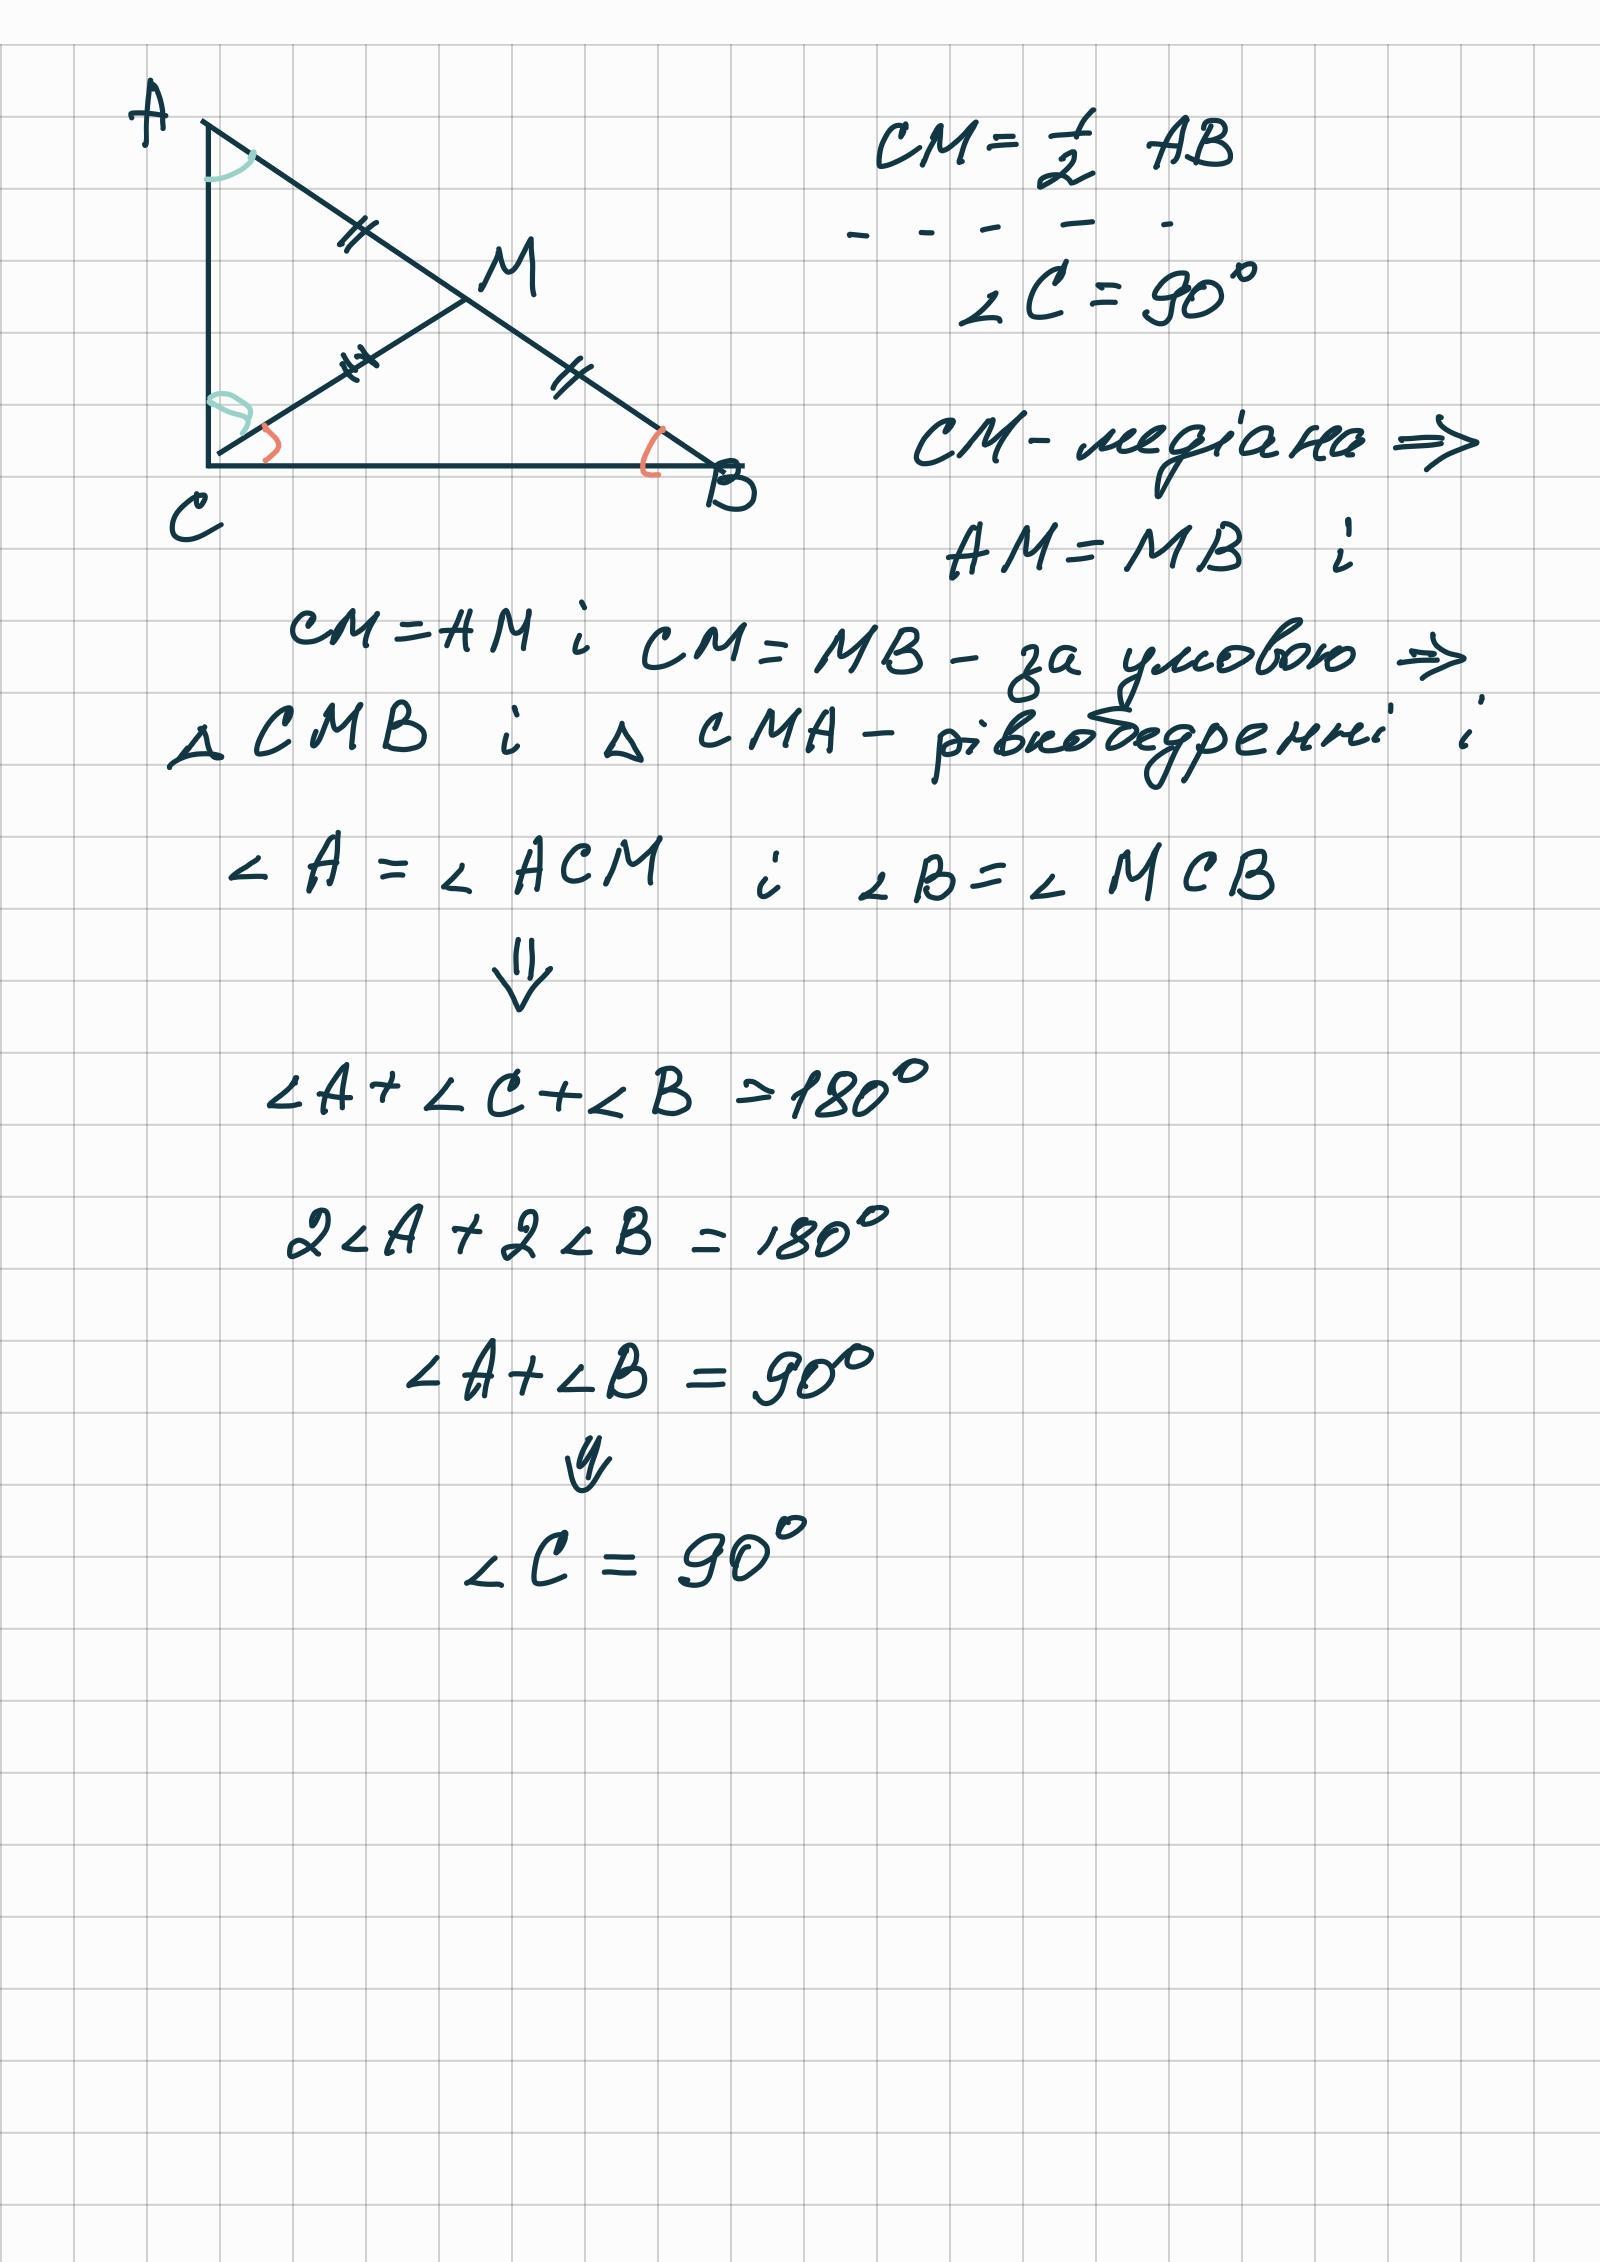 A
CM = 1/2 AB
M
∠C = 90°
CM - медіана ⇒
C
B
AM = MB і
CM = AM і CM = MB - за умовою ⇒
△ CMB і △ CMA - рівнобедренні і
∠A = ∠ACM і ∠B = ∠MCB
⇓
∠A + ∠C + ∠B = 180°
2∠A + 2∠B = 180°
∠A + ∠B = 90°
⇓
∠C = 90°